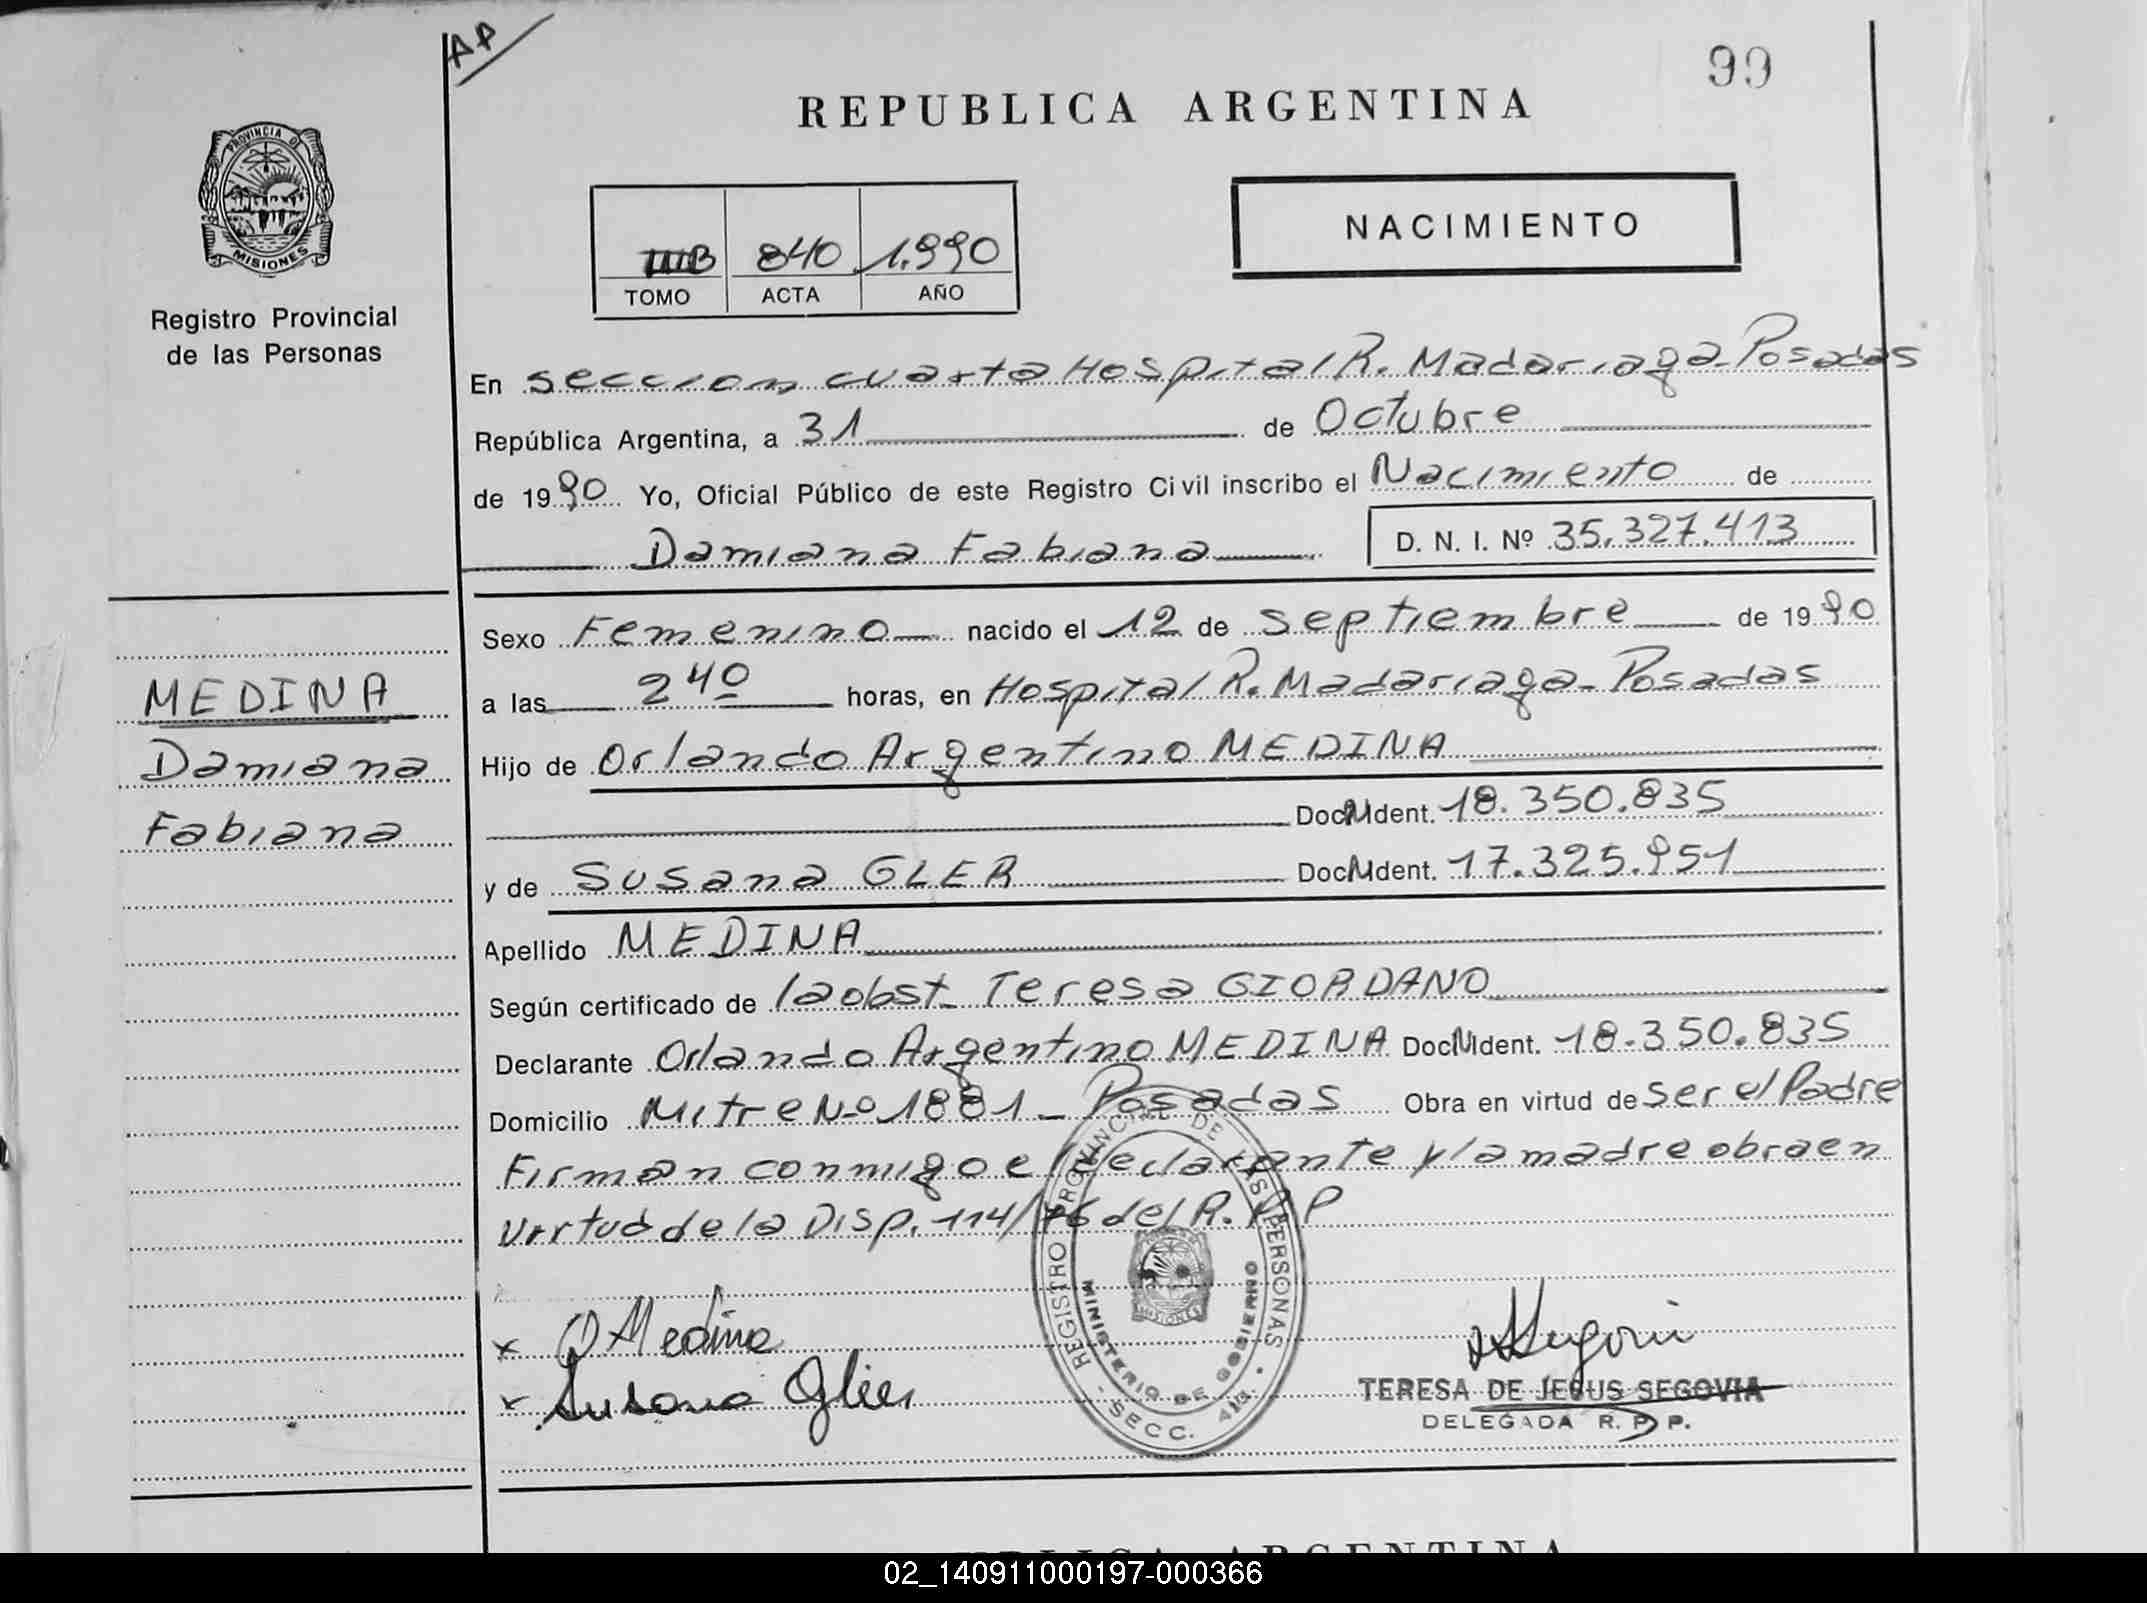 AP
99
REPUBLICA ARGENTINA
PROVINCIA DE
MISIONES
Registro Provincial
de las Personas
IIIB 840 1.990
TOMO ACTA AÑO
NACIMIENTO
En seccion cuarta Hospital R. Madariaga - Posadas
República Argentina, a 31 de Octubre
de 1990 Yo, Oficial Público de este Registro Civil inscribo el Nacimiento de
Damiana Fabiana D. N. I. Nº 35.327.413
Sexo Femenino nacido el 12 de septiembre de 1990
a las 2 40 horas, en Hospital R. Madariaga - Posadas
Hijo de Orlando Argentino MEDINA
Doc. Ident. 18.350.835
y de Susana GLER Doc. Ident. 17.325.951
Apellido MEDINA
Según certificado de la obst. Teresa GIORDANO
Declarante Orlando Argentino MEDINA Doc. Ident. 18.350.835
Domicilio Mitre Nº 1881 - Posadas Obra en virtud de ser el Padre
Firman conmigo el declarante y la madre obra en
virtud de la Disp. 114/76 del R. P. P
MEDINA
Damiana
Fabiana
x O Medina
Susana Glier
REGISTRO PROVINCIAL DE LAS PERSONAS
MINISTERIO DE GOBIERNO
MISIONES
SECC. 4ta.
TERESA DE JESUS SEGOVIA
DELEGADA R. P. P.
REPUBLICA ARGENTINA
02_140911000197-000366